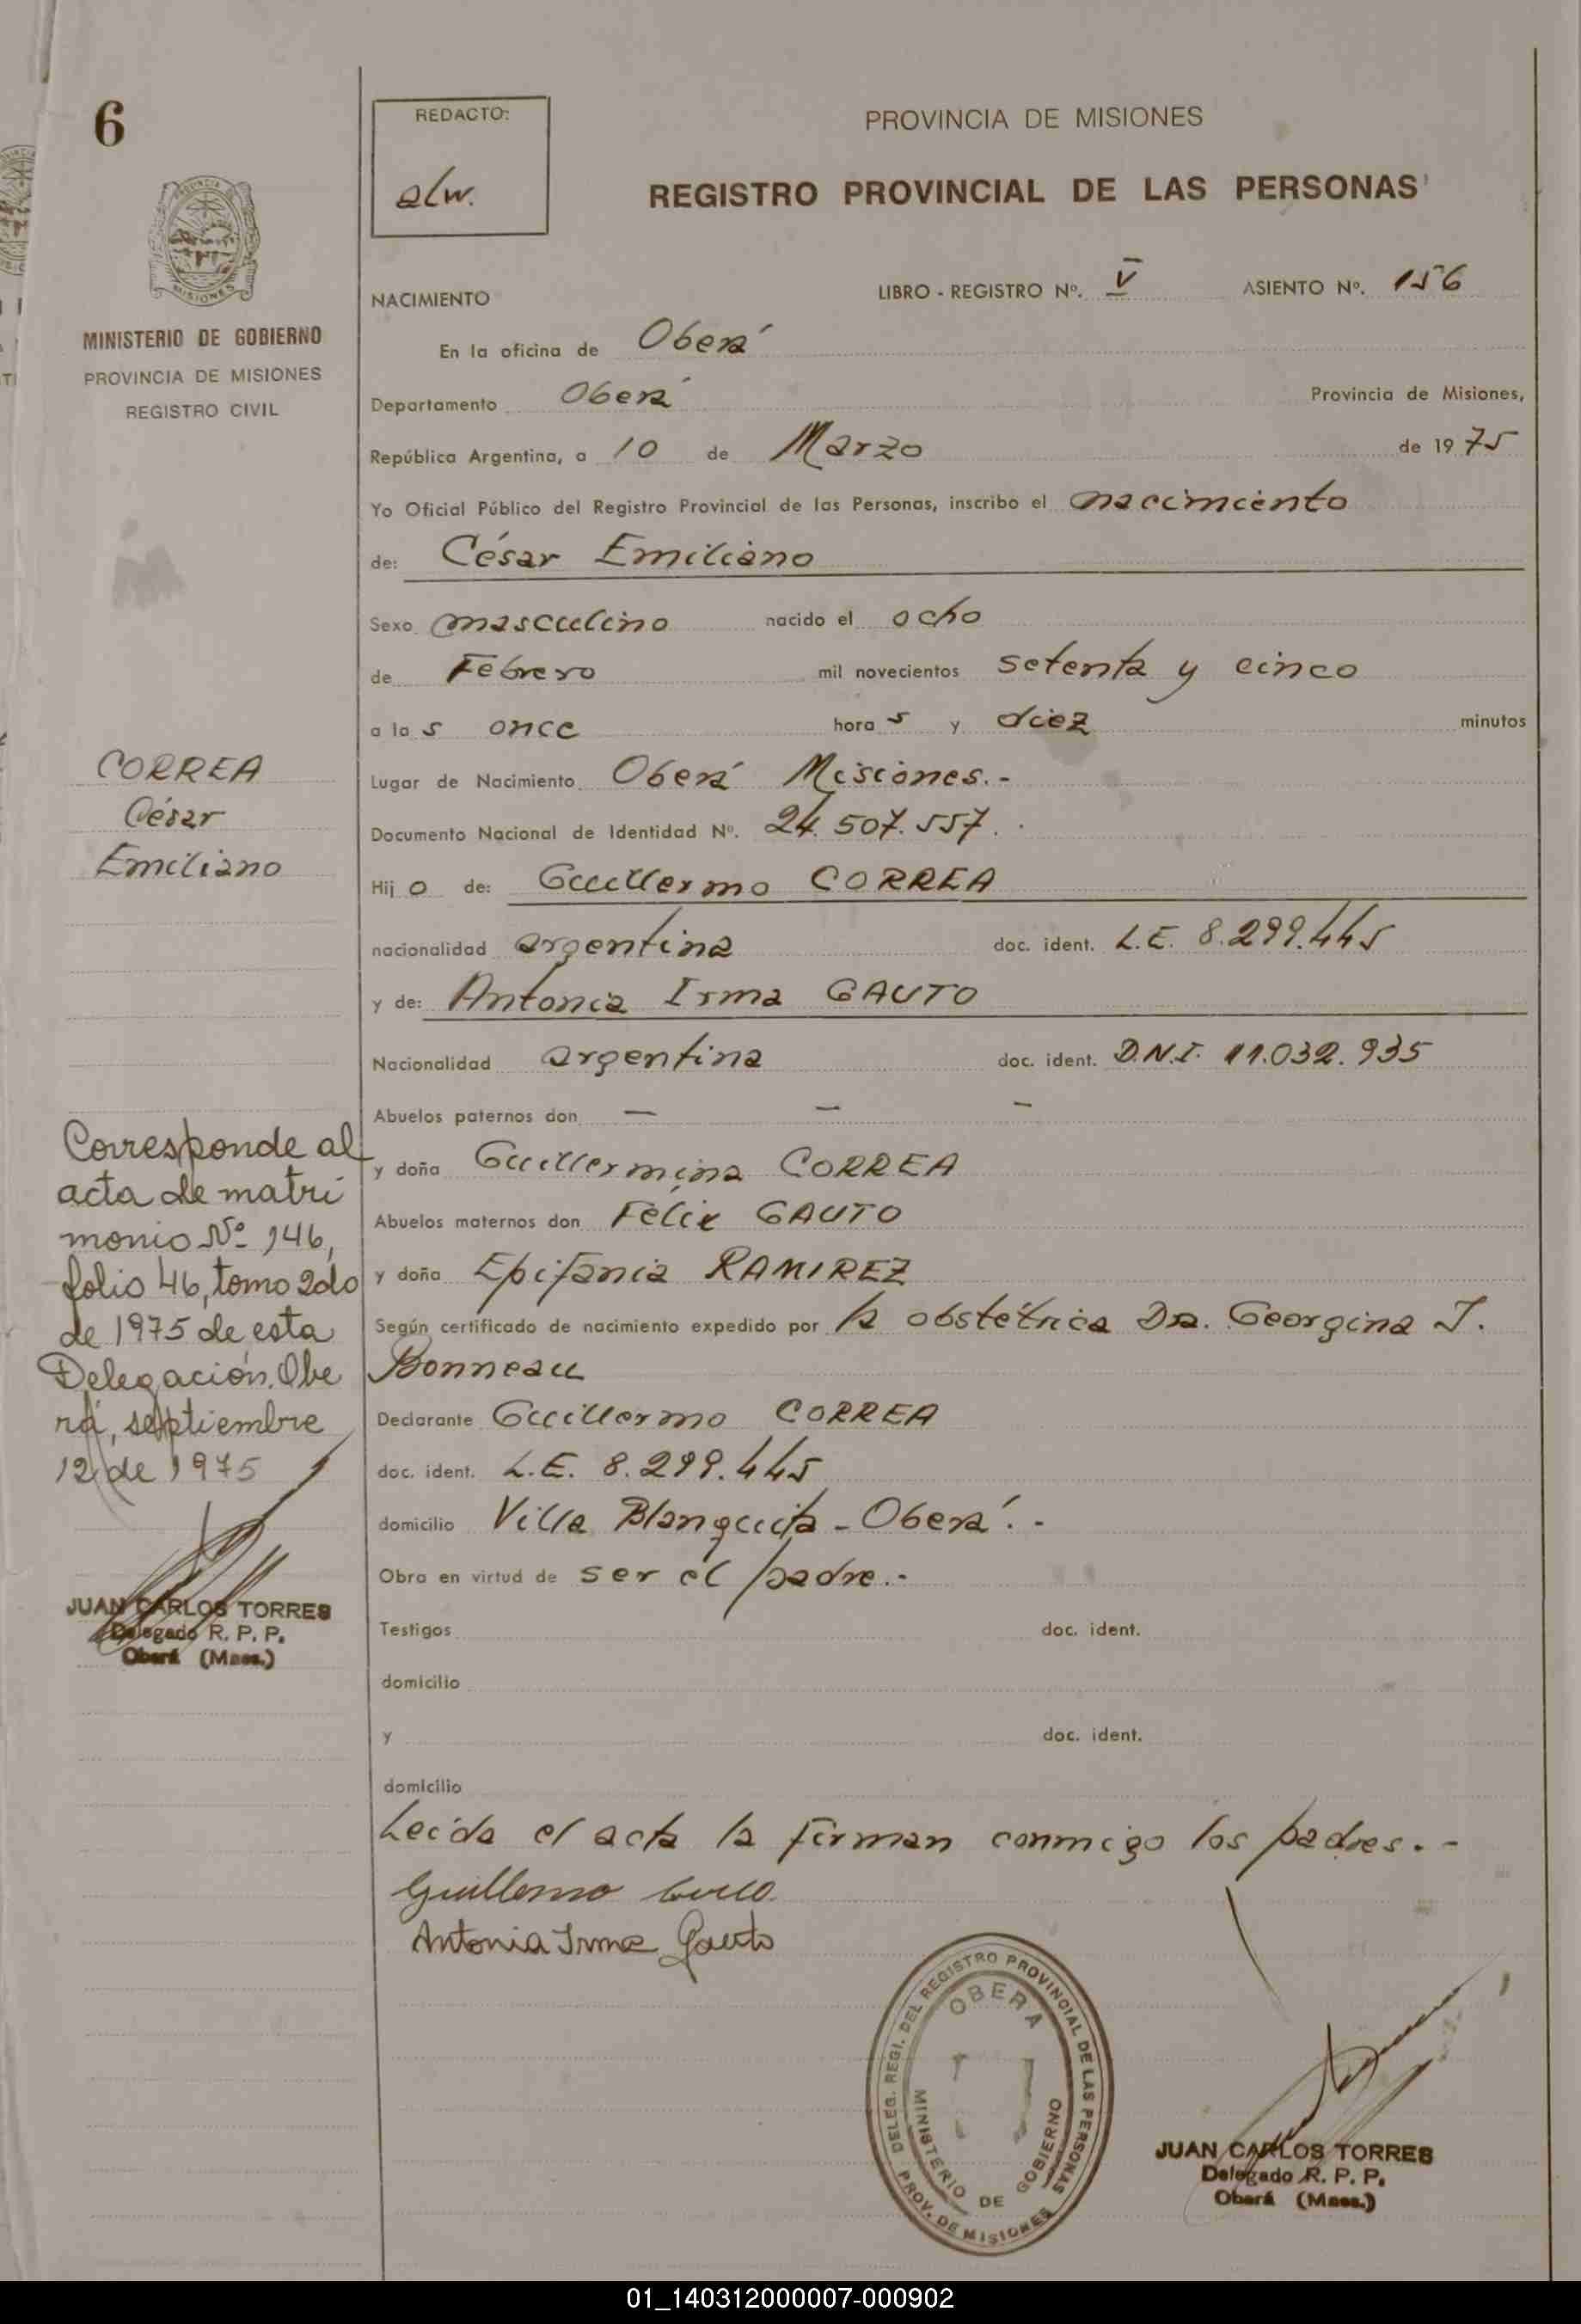 6
MINISTERIO DE GOBIERNO
PROVINCIA DE MISIONES
REGISTRO CIVIL
CORREA
César
Emiliano
Corresponde al
acta de matri
monio Nº 146,
folio 46, tomo 2do
de 1975 de esta
Delegación. Obe
rá, septiembre
12 de 1975
JUAN CARLOS TORRES
Delegado R. P. P.
Oberá (Mnes.)
REDACTO:
alw.
PROVINCIA DE MISIONES
REGISTRO PROVINCIAL DE LAS PERSONAS
NACIMIENTO LIBRO - REGISTRO Nº. V ASIENTO Nº. 156
En la oficina de Oberá
Departamento Oberá Provincia de Misiones,
República Argentina, a 10 de Marzo de 1975
Yo Oficial Público del Registro Provincial de las Personas, inscribo el nacimiento
de: César Emiliano
Sexo masculino nacido el ocho
de Febrero mil novecientos setenta y cinco
a las once horas y diez minutos
Lugar de Nacimiento Oberá Misiones.-
Documento Nacional de Identidad Nº. 24.507.557.
Hijo de: Guillermo CORREA
nacionalidad argentina doc. ident. L.E. 8.299.445
y de: Antonia Irma GAUTO
Nacionalidad argentina doc. ident. D.N.I. 11.032.935
Abuelos paternos don — — —
y doña Guillermina CORREA
Abuelos maternos don Félix GAUTO
y doña Epifania RAMIREZ
Según certificado de nacimiento expedido por la obstétrica Dra. Georgina J.
Bonneau
Declarante Guillermo CORREA
doc. ident. L.E. 8.299.445
domicilio Villa Blanquita - Oberá.-
Obra en virtud de ser el padre.-
Testigos doc. ident.
domicilio
y doc. ident.
domicilio
Leída el acta la firman conmigo los padres.-
Guillermo
Antonia Irma Gauto
DELEG. REGI. DEL REGISTRO PROVINCIAL DE LAS PERSONAS
OBERA
MINISTERIO DE GOBIERNO
PROV. DE MISIONES
JUAN CARLOS TORRES
Delegado R. P. P.
Oberá (Mnes.)
01_140312000007-000902